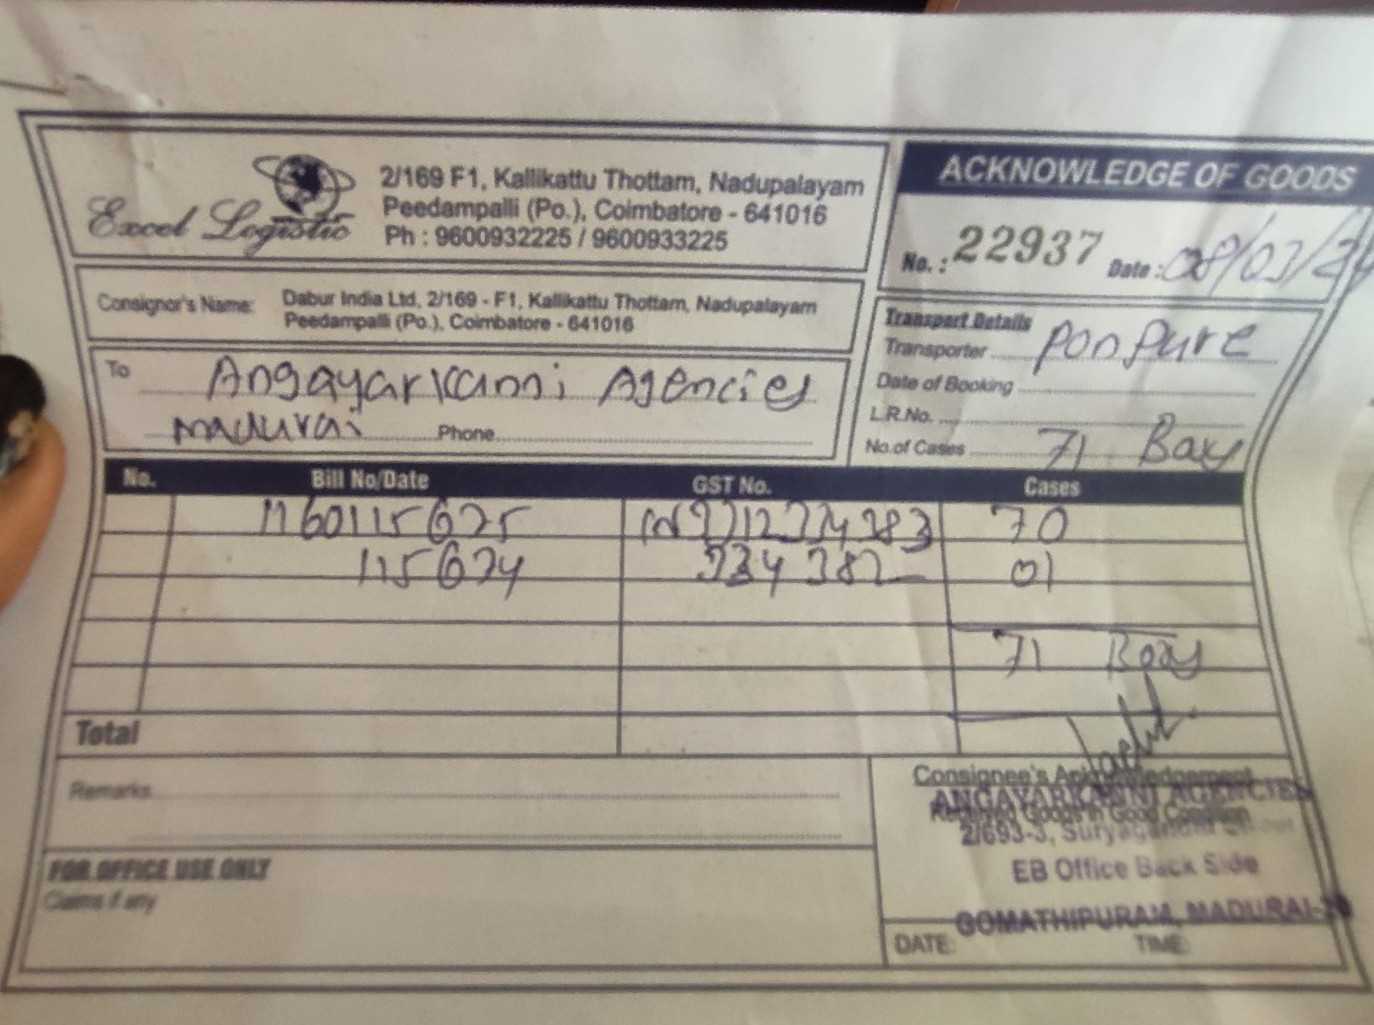 Excel Logistic
2/169 F1, Kallikattu Thottam, Nadupalayam
Peedampalli (Po.), Coimbatore - 641016
Ph : 9600932225 / 9600933225
ACKNOWLEDGE OF GOODS
No. : 22937 Date : 08/03/24
Consignor's Name: Dabur India Ltd, 2/169 - F1, Kallikattu Thottam, Nadupalayam
Peedampalli (Po.), Coimbatore - 641016
To Angayarkanni Agencies
Madurai Phone
Transport Details
Transporter Ponpure
Date of Booking
L.R.No.
No.of Cases 71 Box
No. Bill No/Date GST No. Cases
1160115675 70
115674 01
71 Box
Total
Remarks
FOR OFFICE USE ONLY
Claims if any
Consignee's Acknowledgement
Received Goods in Good Condition
ANGAYARKANNI AGENCIES
2/693-3,
EB Office Back Side
GOMATHIPURAM, MADURAI-20
DATE: TIME